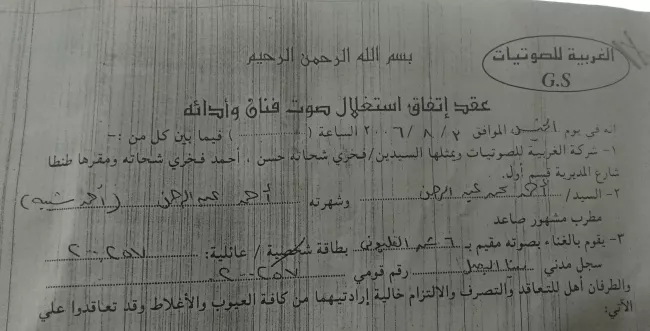 الغربية للصوتيات
G.S
بسم الله الرحمن الرحيم
عقد إتفاق استغلال صوت فنان وأدائه
انه في يوم الموافق ٢ / ٨ / ٢٠٠٦ الساعة ( ) فيما بين كل من :-
١- شركة الغربية للصوتيات ويمثلها السيدين/فخري شحاته حسن ، أحمد فخري شحاته ومقرها طنطا
شارع المديرية قسم أول.
٢- السيد/ أحمد محمد عبد الرحمن وشهرته أحمد عبد الرحمن (أحمد شيبه)
مطرب مشهور صاعد
٣- يقوم بالغناء بصوته مقيم بـ ٦ ش بطاقة شخصية / عائلية: ٢٠٠٢٥٧
سجل مدني مينا البصل رقم قومي ٢٠٠٢٥٧
والطرفان أهل للتعاقد والتصرف والالتزام خالية إرادتيهما من كافة العيوب والأغلاط وقد تعاقدوا علي
الآتي: